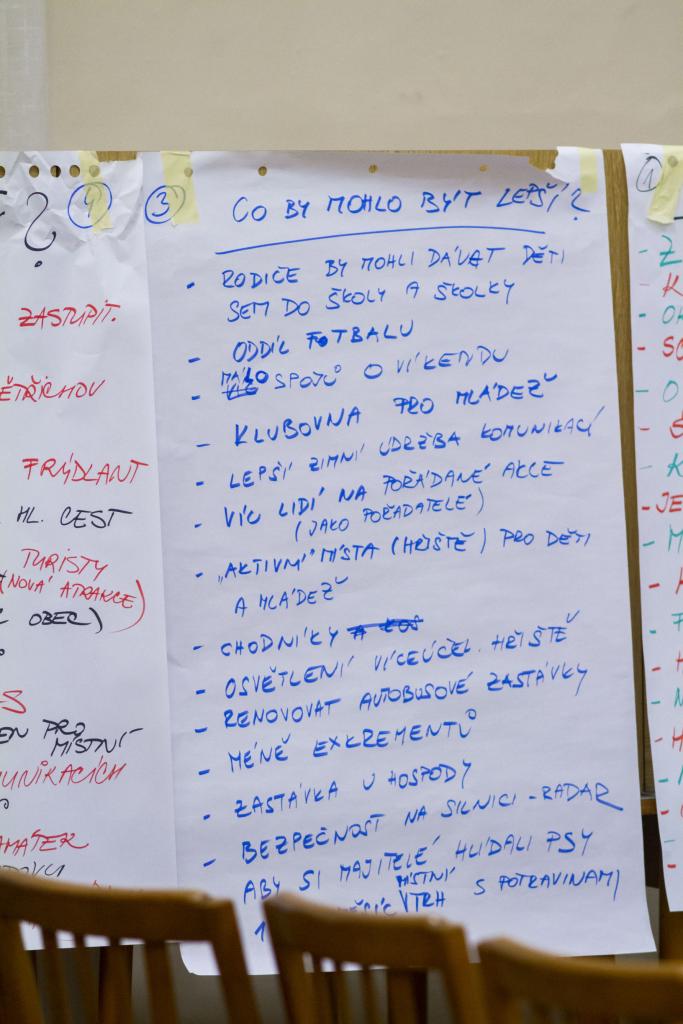 ?
4
ZASTUPIT.
ĚTŘICHOV
FRÝDLANT
HL. CEST
TURISTY
(NOVÁ ATRAKCE)
OBEC)
EN PRO
MÍSTNÍ
UNIKACÍCH
AMÁTEK
3
CO BY MOHLO BÝT LEPŠÍ?
- RODIČE BY MOHLI DÁVAT DĚTI
SEM DO ŠKOLY A ŠKOLKY
- ODDÍL FOTBALU
- MÁLO SPOJŮ O VÍKENDU
- KLUBOVNA PRO MLÁDEŽ
- LEPŠÍ ZIMNÍ ÚDRŽBA KOMUNIKACÍ
- VÍC LIDÍ NA POŘÁDANÉ AKCE
(JAKO POŘADATELÉ)
- "AKTIVNÍ" MÍSTA (HŘIŠTĚ) PRO DĚTI
A MLÁDEŽ
- CHODNÍKY
- OSVĚTLENÍ VÍCEÚČEL. HŘIŠTĚ
- RENOVOVAT AUTOBUSOVÉ ZASTÁVKY
- MÉNĚ EXKREMENTŮ
- ZASTÁVKA U HOSPODY
- BEZPEČNOST NA SILNICI - RADAR
ABY SI MAJITELÉ HLÍDALI PSY
MÍSTNÍ
TRH S POTRAVINAMI
1